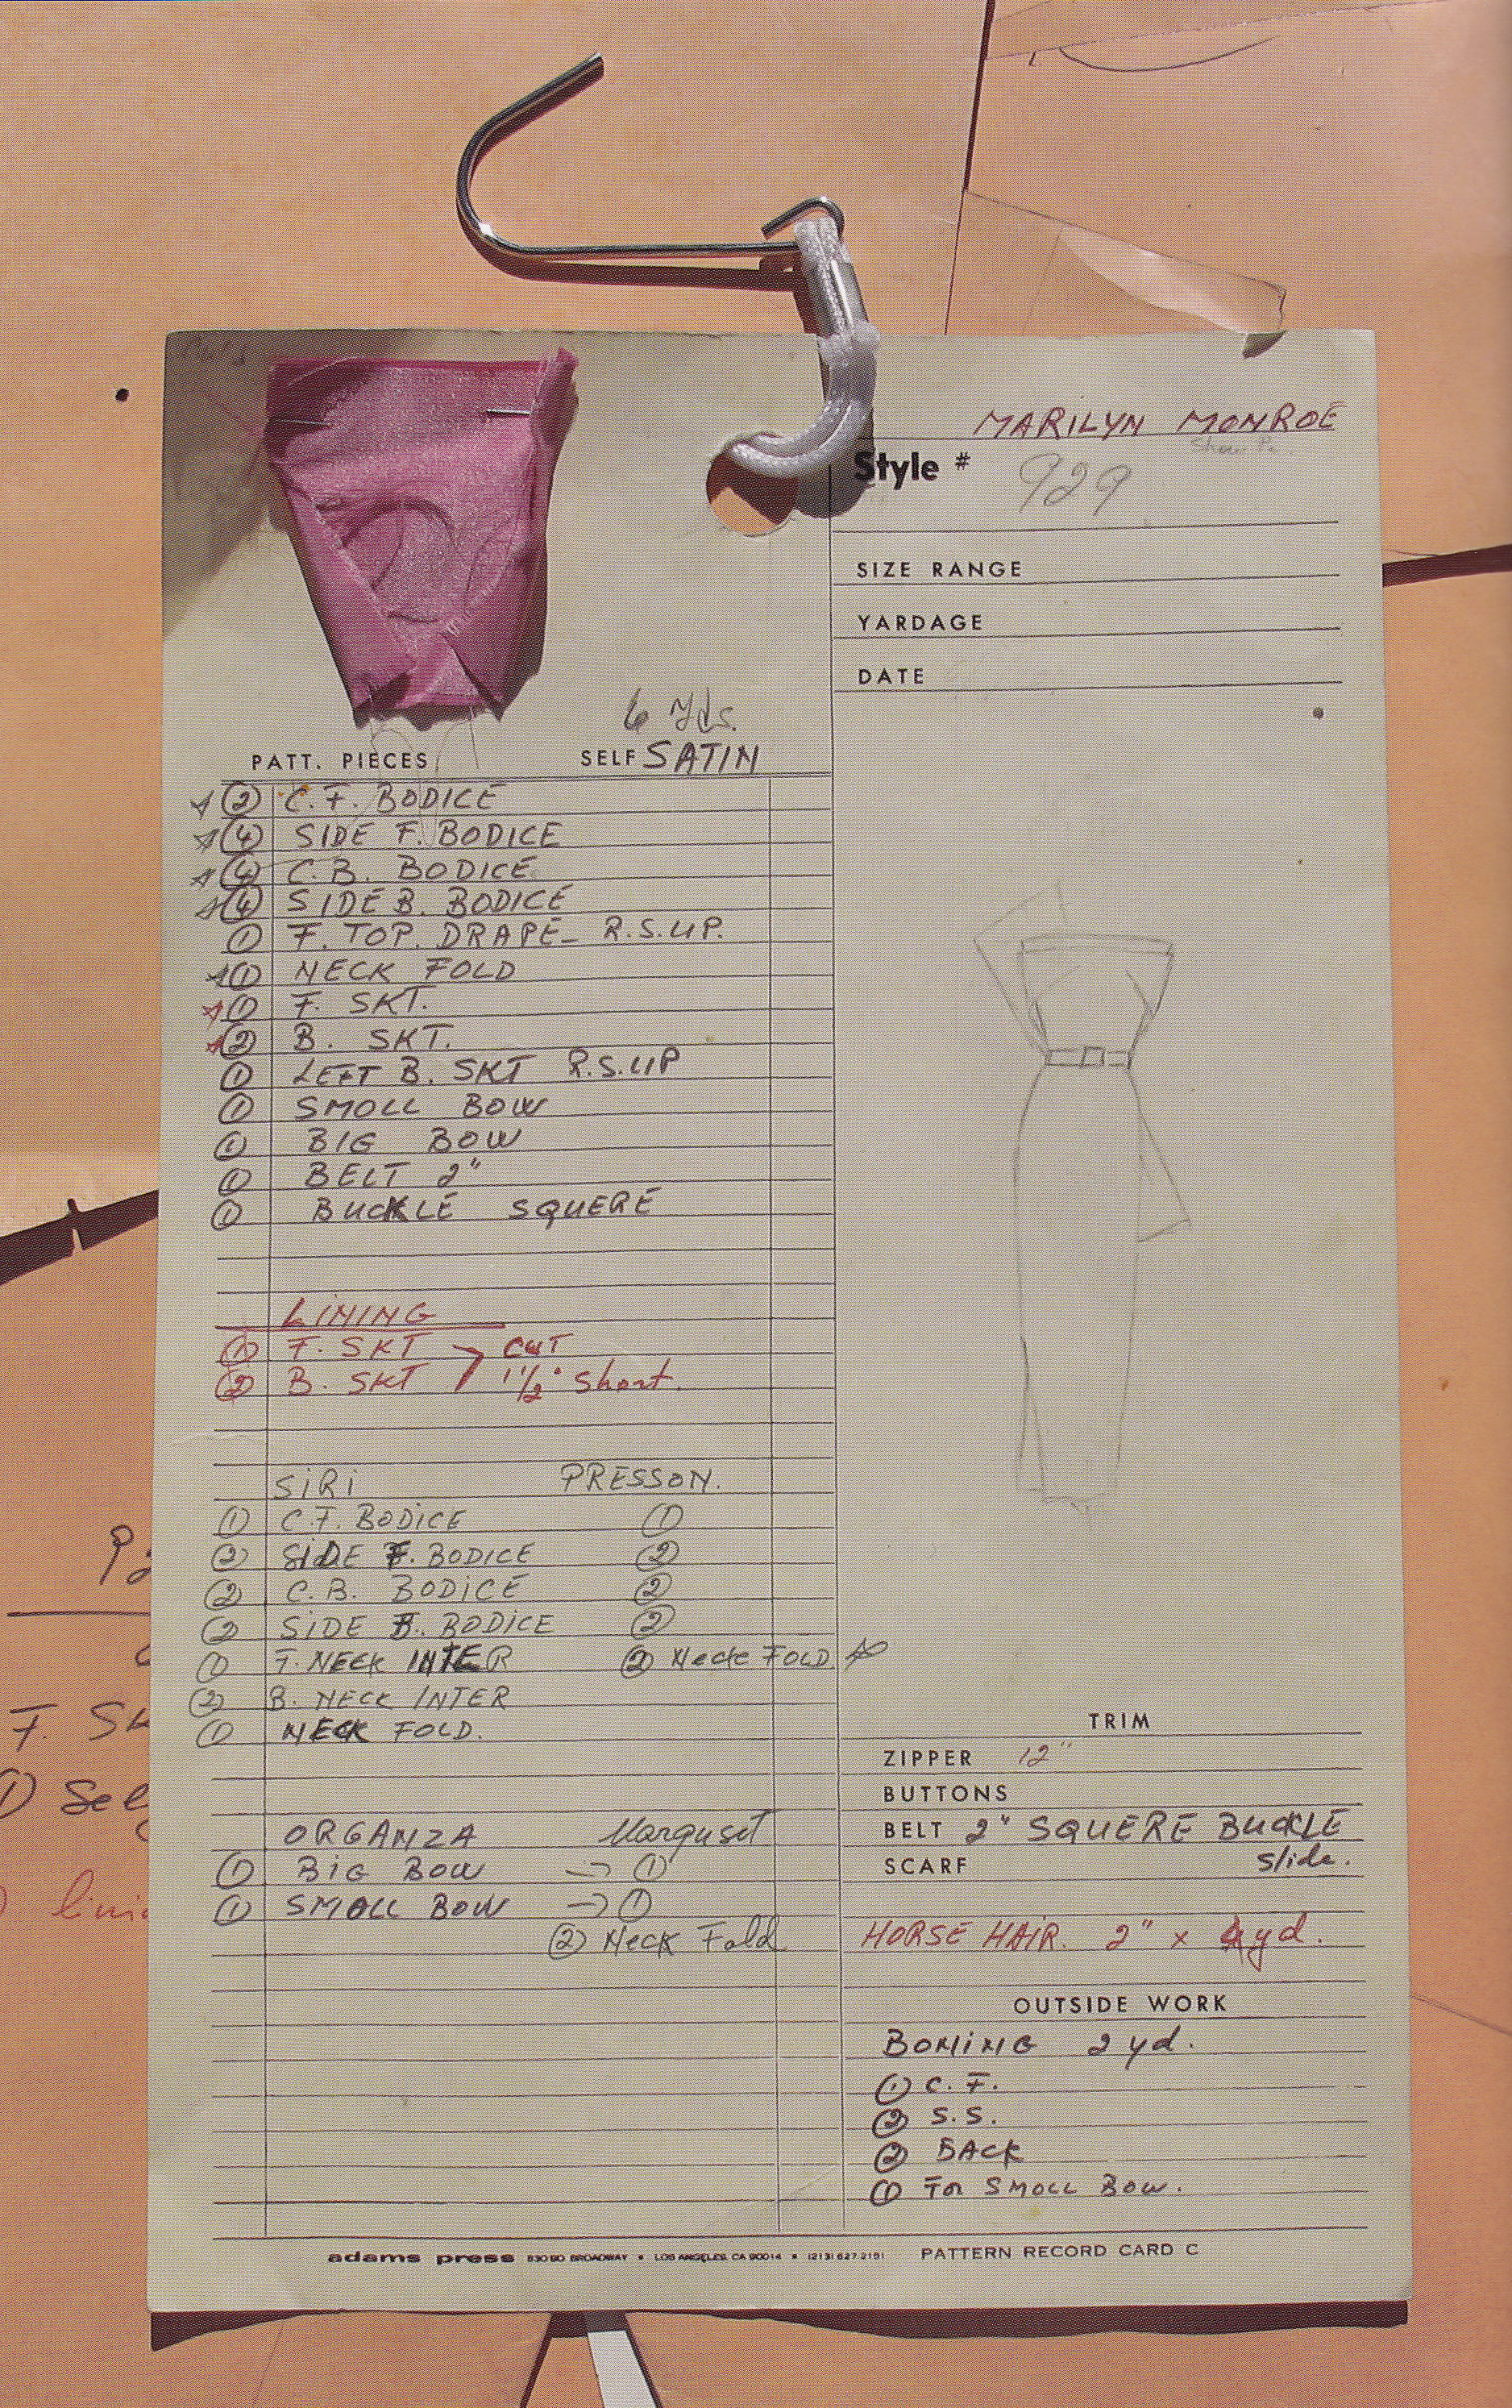 MARILYN MONROE
Style # 929
SIZE RANGE
YARDAGE
DATE
6 Yds.
PATT. PIECES SELF SATIN
② C.F. BODICE
④ SIDE F. BODICE
④ C.B. BODICE
④ SIDE B. BODICE
① F. TOP. DRAPE - R.S.UP.
① NECK FOLD
① F. SKT.
② B. SKT.
① LEFT B. SKT R.S.UP
① SMOLL BOW
① BIG BOW
① BELT 2"
① BUCKLE SQUERE
LINING
① F. SKT > CUT
② B. SKT 1 1/2" Short.
SIRI PRESSON.
① C.F. BODICE ①
② SIDE F. BODICE ②
② C.B. BODICE ②
② SIDE B. BODICE ②
① F. NECK INTER ② Neck FOLD
② B. NECK INTER
① NECK FOLD.
ORGANZA Marguset
① BIG BOW → ①
① SMALL BOW → ①
② Neck Fold
TRIM
ZIPPER 12"
BUTTONS
BELT 2" SQUERE BUCKLE
SCARF slide.
HORSE HAIR. 2" x 4 yd.
OUTSIDE WORK
BONING 2 yd.
① C.F.
② S.S.
② BACK
① FOR SMOLL BOW.
adams press 830 SO. BROADWAY • LOS ANGELES, CA 90014 • (213) 627-2151 PATTERN RECORD CARD C
F. Sk
① Sel